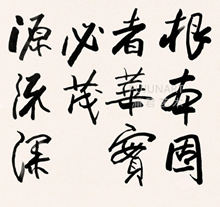 根本固
者華實
必茂
源流深